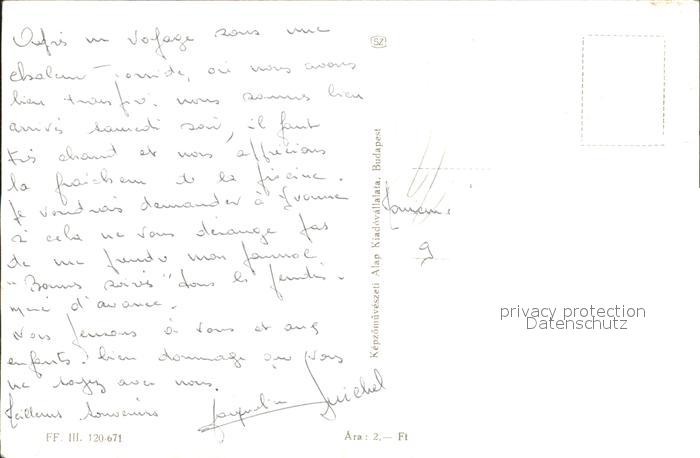 Après un voyage sous une
chaleur torride, où nous avons
bien transpiré nous sommes bien
arrivés samedi soir, il fait
très chaud et nous apprécions
la fraîcheur de la piscine.
Je voudrais demander à Yvonne
si cela ne vous dérange pas
de me prendre mon journal
"Bonnes soirées" tous les jeudis.
merci d'avance.
Nous pensons à vous et aux
enfants. bien dommage que vous
ne soyez avec nous.
Meilleurs souvenirs Jacqueline Michel
SZ
Képzőművészeti Alap Kiadóvállalata, Budapest
9
privacy protection
Datenschutz
FF. III. 120-671
Ára: 2,— Ft